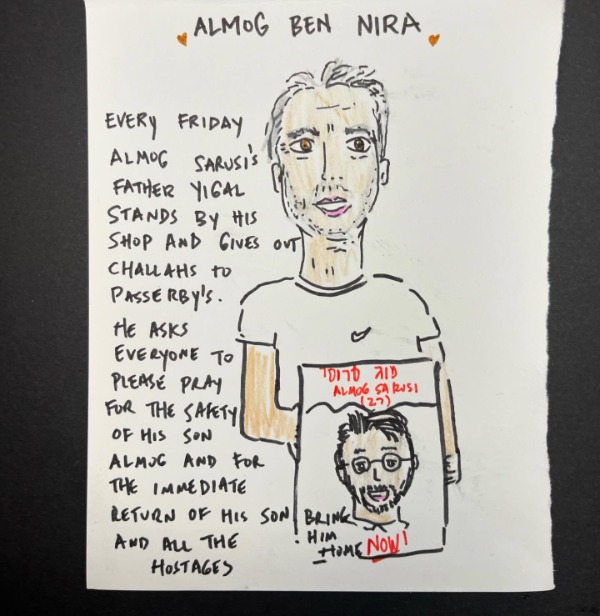 ALMOG BEN NIRA
EVERY FRIDAY
ALMOG SARUSI'S
FATHER YIGAL
STANDS BY HIS
SHOP AND GIVES OUT
CHALLAHS TO
PASSERBY'S.
HE ASKS
EVERYONE TO
PLEASE PRAY
FOR THE SAFETY
OF HIS SON
ALMOG AND FOR
THE IMMEDIATE
RETURN OF HIS SON
AND ALL THE
HOSTAGES
סרוסי
ALMOG SARUSI
(27)
BRING
HIM
HOME NOW!